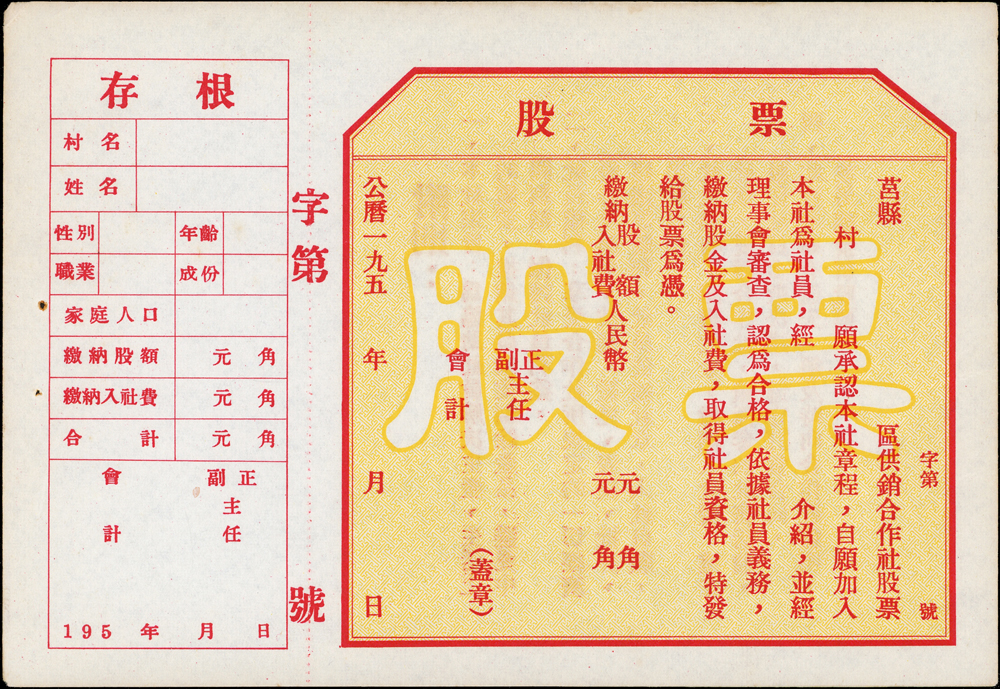 股票
字第 號
莒縣 區供銷合作社股票
村 願承認本社章程，自願加入
本社爲社員，經 介紹，並經
理事會審查，認爲合格，依據社員義務，
繳納股金及入社費，取得社員資格，特發
給股票爲憑。
繳納股 額人民幣 元 角
入社費 元 角
正
副
主任
會計
（蓋章）
公曆一九五 年 月 日
股票
字第 號
存根
村名
姓名
性別 年齡
職業 成份
家庭人口
繳納股額 元 角
繳納入社費 元 角
合計 元 角
正
副
主任
會計
195 年 月 日